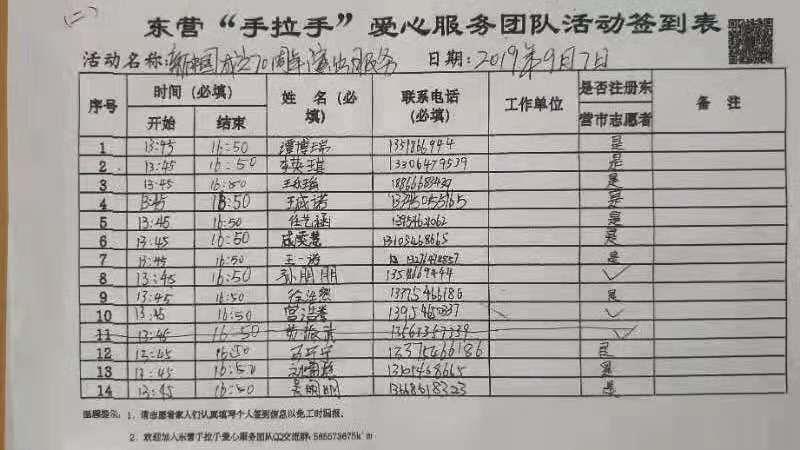 (二)
东营“手拉手”爱心服务团队活动签到表
活动名称:新中国成立70周年演出服务 日期:2019年9月7日
序号 时间（必填） 姓 名（必填） 联系电话（必填） 工作单位 是否注册东营市志愿者 备 注
开始 结束
1 13:45 16:50 谭博瑞 是
2 13:45 16:50 李英琪 13306479539 是
3 13:45 16:50 是
4 13:45 16:50 王成诺 是
5 13:45 16:50 任艺涵 是
6 13:45 16:50 成奕慧 13105468665 是
7 13:45 16:50 王一诺 是
8 13:45 16:50 孙朋朋 ✓
9 13:45 16:50 13375466186 是
10 13:45 16:50 宫浩誉 ✓
11 13:45 16:50 ✓
12 13:45 16:50 是
13 13:45 16:50 13105468665 是
14 13:45 16:50 吴明明 13668618323 是
温馨提示：1、请志愿者家人们认真填写个人签到信息以免工时漏报。
2、欢迎加入东营手拉手爱心服务团队QQ交流群：585573675k'm